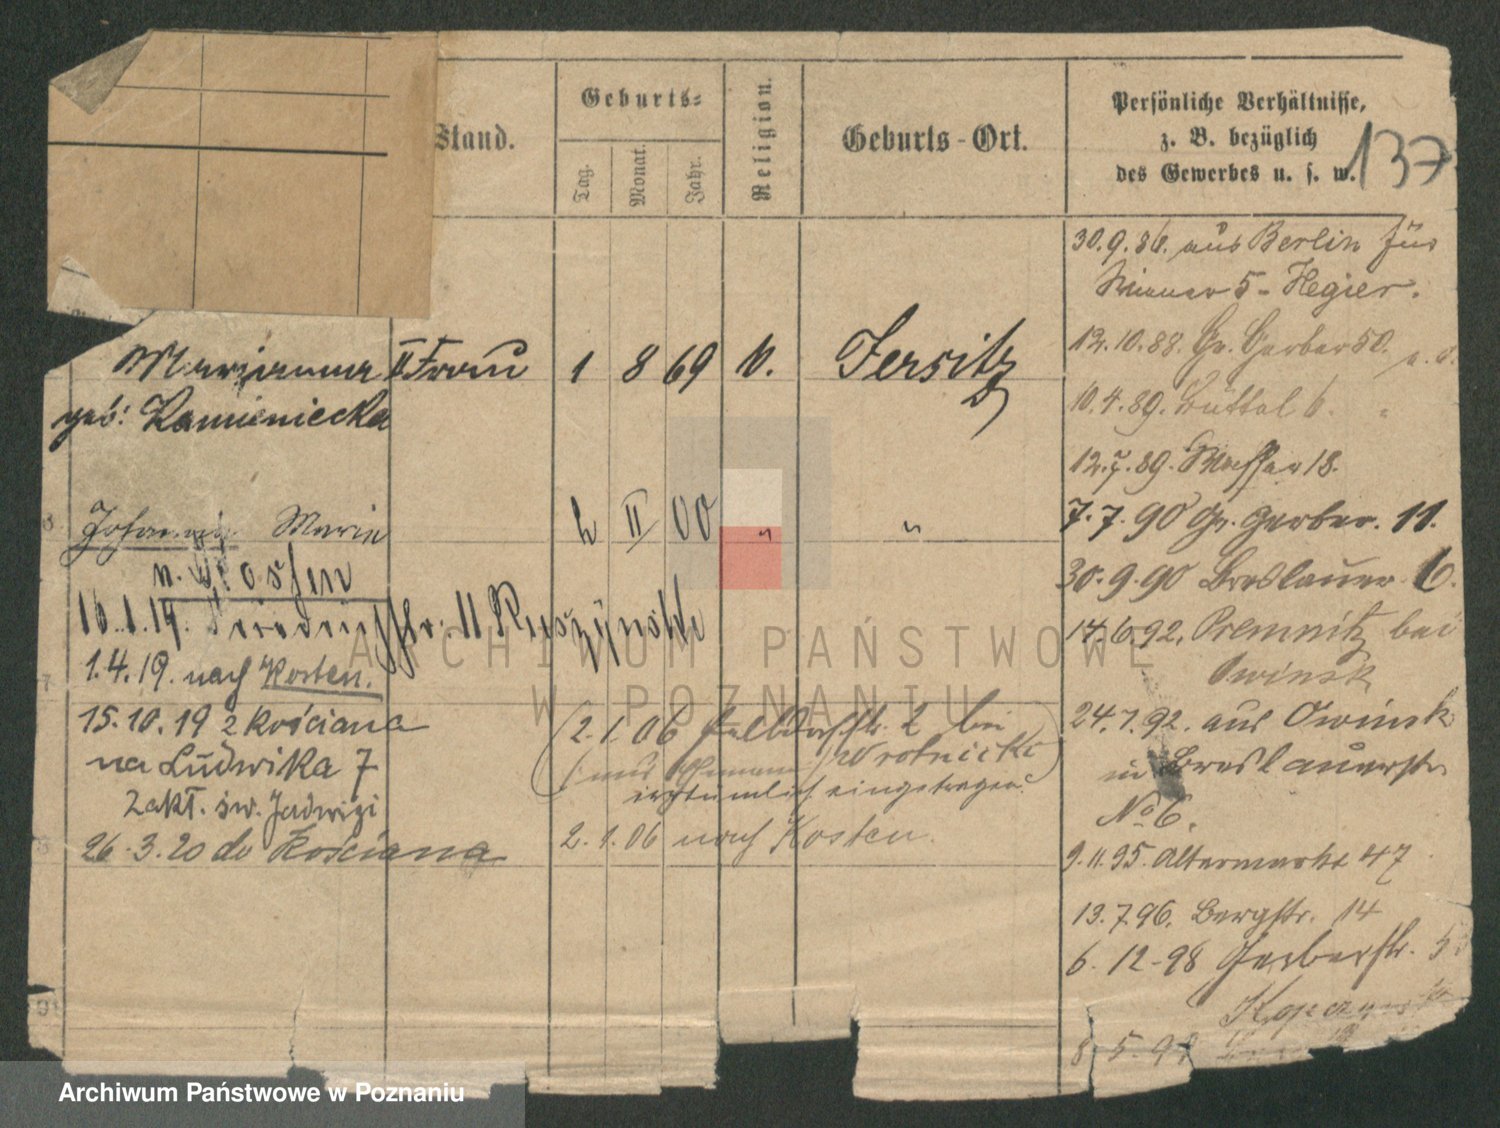 Stand.
Geburts-
Tag.
Monat.
Jahr.
Religion.
Geburts-Ort.
Persönliche Verhältnisse,
z. B. bezüglich
des Gewerbes u. s. w.
137
Marianna II Frau 1 8 69 k. Jersitz
geb: Kamieniecka
Marie 2 II 00 " "
16.1.19. 11 Ruszynski
1.4.19. nach Kosten.
15.10.19 z Kościana
na Ludwika 7
Zakł. św. Jadwigi
26.3.20 do Kościana
(2.1.06 2 bei
Wrotnicki)
irrtümlich eingetragen
2.1.06 nach Kosten.
30.9.86. aus Berlin für
Wiener 5 - Hegier.
12.10.88. Gr. Gerber 50.
10.4.89. Büttel 6.
12.7.89. Wasser 18.
7.7.90 Gr. Gerber. 11.
30.9.90 Breslauer 6.
14.6.92. Premnitz bei
Owinsk
24.7.92. aus Owinsk
in Breslauerstr
No 6.
9.11.95. Altermarkt 47
13.7.96. Bergstr. 14
6.12.98 Gerberstr.
8.5.99
ARCHIWUM PAŃSTWOWE
W POZNANIU
Archiwum Państwowe w Poznaniu